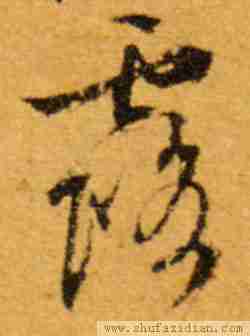 露
www.shufazidian.com